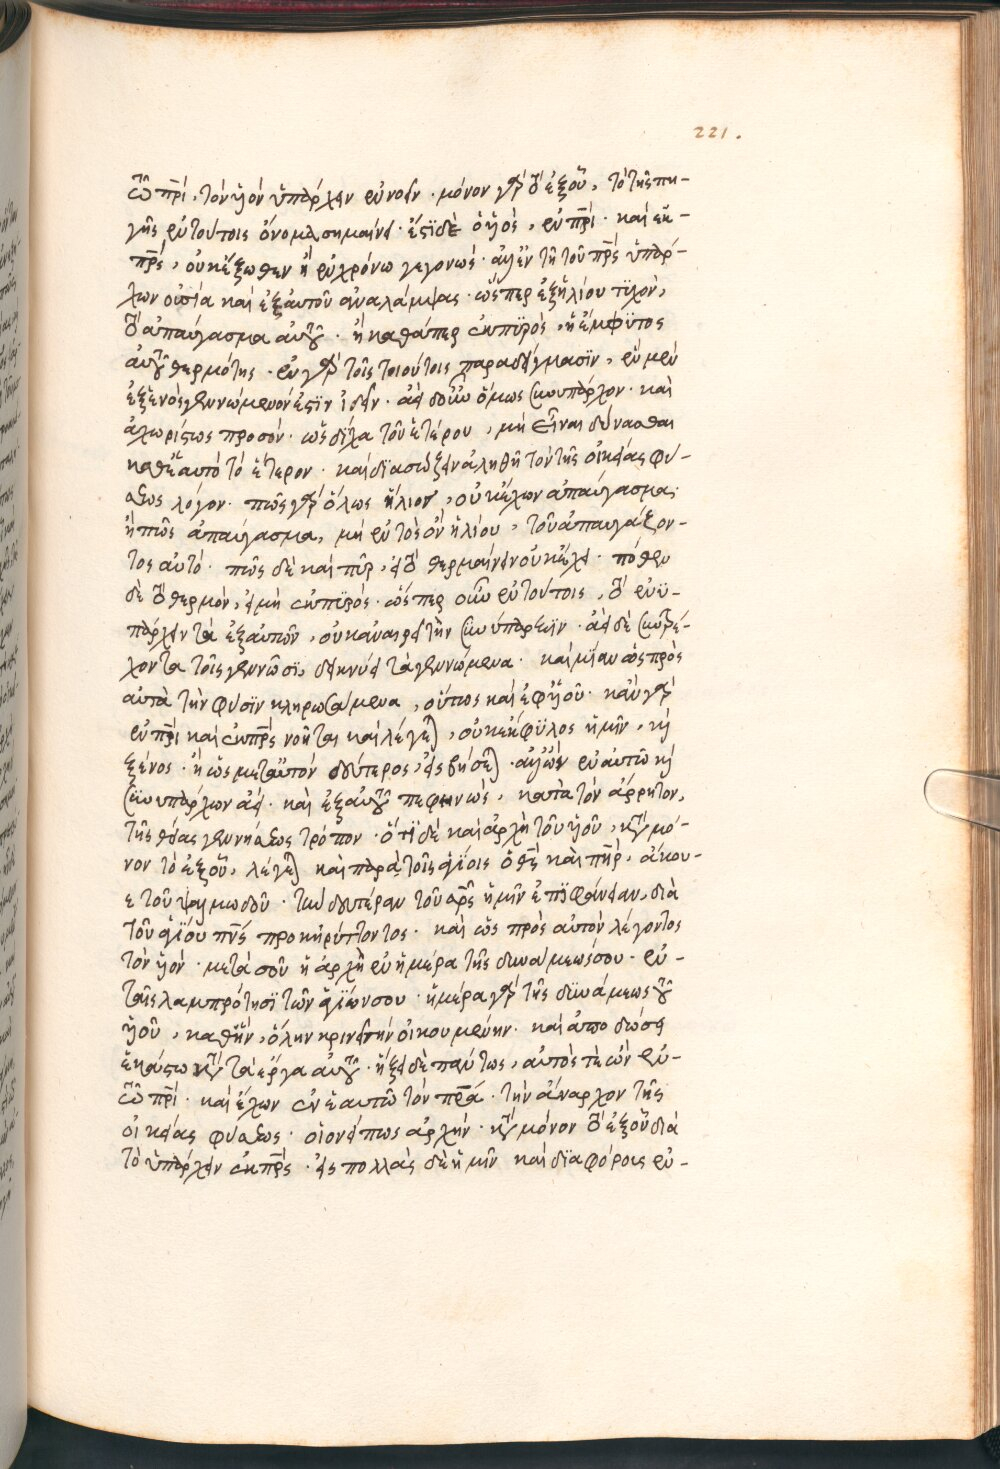 221.
τῷ πρὶ, τὸν ὑὸν ὑπάρχειν ἐννοεῖν · μόνον γὰρ τὸ ἐξ οὗ, τὸ τῆς πη-
γῆς ἐν τούτοις ὄνομα σημαίνει · ἔστι δὲ ὁ ὑὸς, ἐν πρὶ · καὶ ἐκ -
πρς, οὐκ ἔξωθεν ἢ ἐν χρόνω γεγονὼς · ἀλλ' ἐν τῆ τοῦ πρς ὑπάρ-
χων οὐσία καὶ ἐξ αὐτοῦ ἀναλάμψας · ὥσπερ ἐξ ἡλίου τυχὸν,
τὸ ἀπαύγασμα αὐτοῦ · ἢ καθάπερ ἐκ πυρὸς, ἡ ἔμφυτος
αὐτοῦ θερμότης · ἐν γὰρ τοῖς τοιούτοις παραδείγμασιν, ἓν μὲν
ἐξ ἑνὸς γεννώμενον ἔστιν ἰδεῖν · ἀεὶ δ' οὖν ὅμως συνυπάρχον · καὶ
ἀχωρίστως προσόν · ὡς δίχα τοῦ ἑτέρου, μὴ εἶναι δύνασθαι
καθ' ἑαυτὸ τὸ ἕτερον · καὶ διασώζειν ἀληθῆ τὸν τῆς οἰκείας φύ-
σεως λόγον · πῶς γὰρ ὅλως ἥλιον, οὐκ ἔχων ἀπαύγασμα·
ἢ πῶς ἀπαύγασμα, μὴ ἐντὸς ὂν ἡλίου, τοῦ ἀπαυγάζον-
τος αὐτό · πῶς δὲ καὶ πῦρ, εἰ τὸ θερμαίνειν οὐκ ἔχει · πόθεν
δὲ τὸ θερμὸν, εἰ μὴ ἐκ πυρός · ὥσπερ οὖν ἐν τούτοις, τὸ ἐνυ-
πάρχειν τὰ ἐξ αὐτῶν, οὐκ ἀναιρεῖ τὴν συνύπαρξιν · ἀεὶ δὲ συντρέ-
χοντα τοῖς γεννῶσι, δεικνύει τὰ γεννώμενα · καὶ μίαν ὡς πρὸς
αὐτὰ τὴν φύσιν κληρωσάμενα, οὕτως καὶ ἐφ' ὑοῦ · κἂν γὰρ
ἐν πρὶ καὶ ἐκ πρς νοῆται καὶ λέγεται, οὐκ ἔκφυλος ἡμῖν, καὶ
ξένος · ἢ ὡς μετ' αὐτὸν δεύτερος, εἰσβήσεται · ἀλλ' ὢν ἐν αὐτῶ καὶ
συνυπάρχων ἀεὶ · καὶ ἐξ αὐτοῦ πεφηνὼς, κατὰ τὸν ἄρρητον,
τῆς θείας γεννήσεως τρόπον · ὅτι δὲ καὶ ἀρχὴ τοῦ ὑοῦ, κατὰ μό-
νον τὸ ἐξ οὗ, λέγεται καὶ παρὰ τοῖς ἁγίοις ὁ θς καὶ πηρ, ἄκου-
ε τοῦ ψαλμωδοῦ · τὴν δευτέραν τοῦ σρς ἡμῖν ἐπιφάνειαν, διὰ
τοῦ ἁγίου πνς προκηρύττοντος · καὶ ὡς πρὸς αὐτὸν λέγοντος
τὸν ὑόν · μετὰ σοῦ ἡ ἀρχὴ ἐν ἡμέρα τῆς δυνάμεώς σου · ἐν -
ταῖς λαμπρότησι τῶν ἁγίων σου · ἡμέρα γὰρ τῆς δυνάμεως τοῦ
ὑοῦ, καθ' ἣν, ὅλην κρινεῖ τὴν οἰκουμένην · καὶ ἀποδώσει
ἑκάστω κατὰ τὰ ἔργα αὐτοῦ · ἥξει δὲ πάντως, αὐτός τε ὢν ἐν -
τῷ πρὶ · καὶ ἔχων ἐν ἑαυτῶ τὸν πρα · τὴν ἄναρχον τῆς
οἰκείας φύσεως · οἱονείπως ἀρχὴν · κατὰ μόνον τὸ ἐξ οὗ διὰ
τὸ ὑπάρχειν ἐκ πρς · εἰς πολλὰς δὲ ἡμῖν καὶ διαφόροις ἐν -